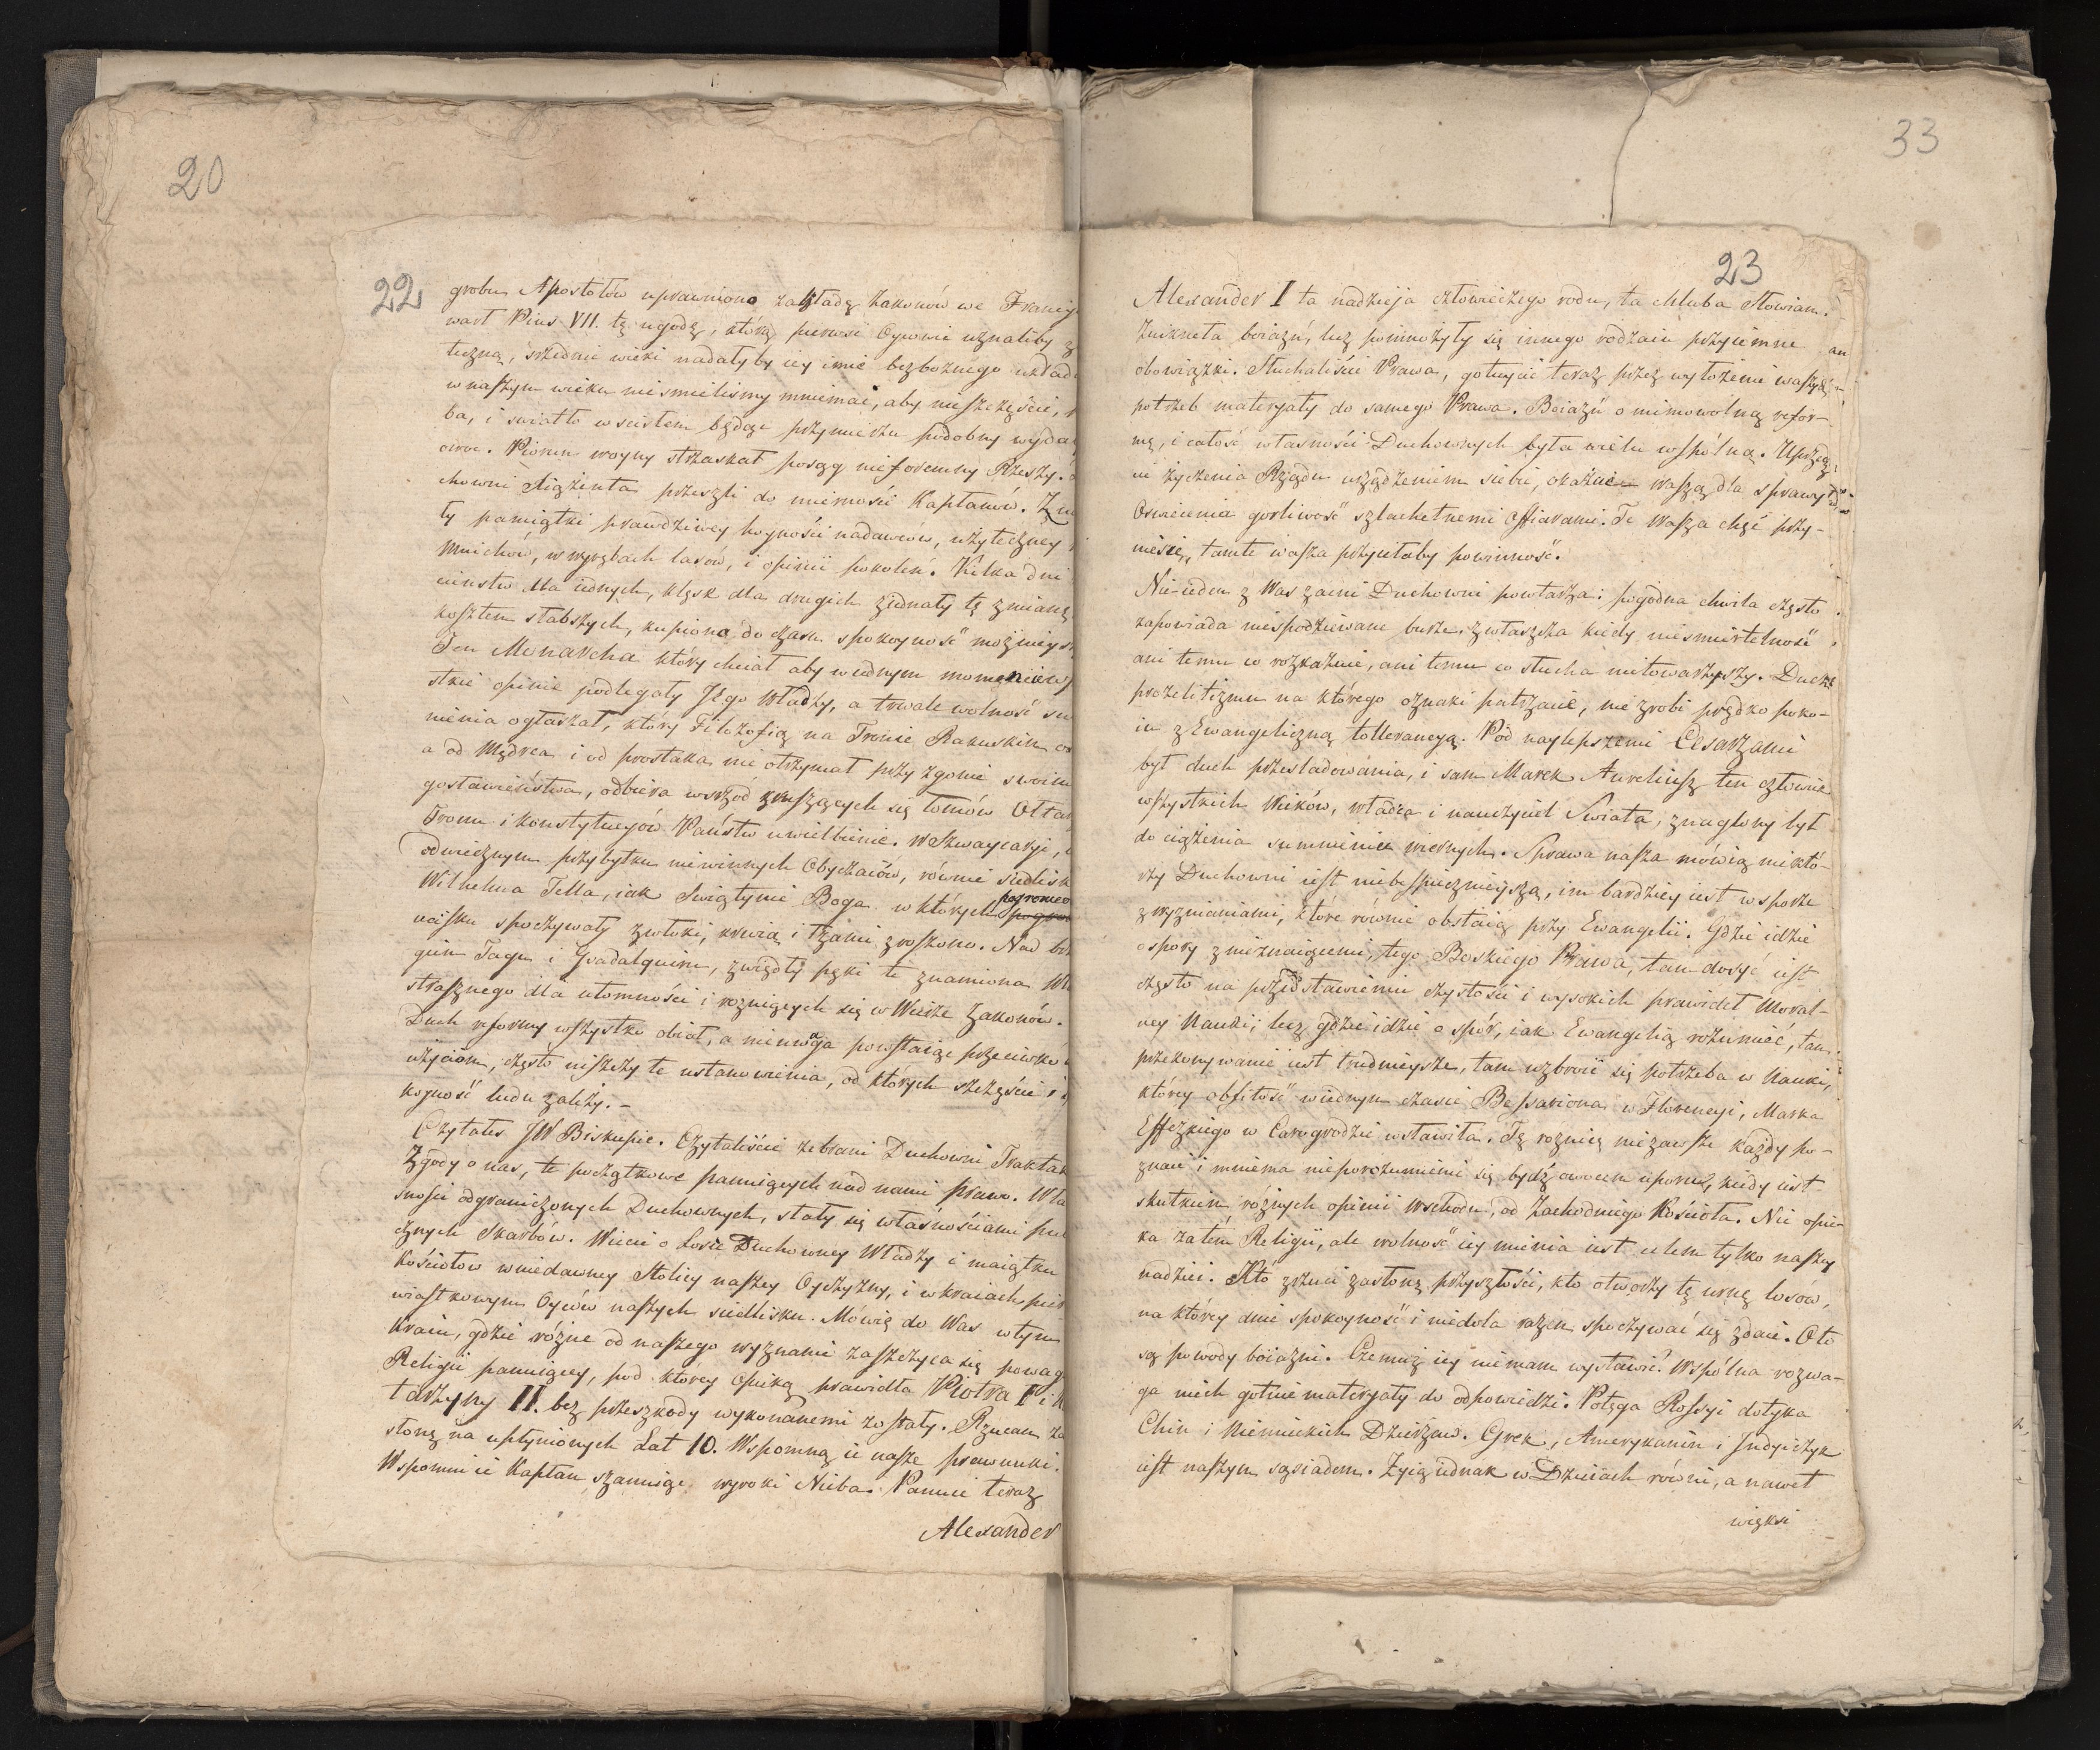 20
22
grobu Apostołów uprawniono zakładę Zakonów we Francyi
wart Pius VII. tę ugodę, którą pierwsi Oycowie uznaliby
teczną, średnie wieki nadałyby iey imie bezbożnego układu
w naszym wieku nieśmieliśmy mniemać, aby nieszczęście,
ba, i światło w ścisłem będąc przymierzu podobny wyda
owoc. Piorun woyny strzaskał posąg nieforemny Rzeszy.
chowni Xiążęta przeszli do mierności Kapłanów.
ły pamiątki prawdziwey hoyności nadawców, użyteczney
Mnichów, w wyrębach lasów, i opinii pokoleń. Kilka dni
cieństw dla iednych, klęsk dla drugich ziednały tę zmianę
kosztem słabszych, kupiono do czasu spokoyność możnieysz
Ten Monarcha który chciał aby w iednym momencie w
stkie opinie podlegały Jego władzy, a trwale wolność su
mienia ogłaszał, który Filozofią na Tronie Rakuskim
a od Mędrca i od prostaka nie otrzymał przy zgonie swoim
gosławieństwa, odbiera wśrzód kruszących się łomów Ołtar
Tronu i Konstytucyów Państw uwielbienie. W Szwaycaryi,
odwiecznym przybytku niewinnych Obyczaiów, równie siedlisk
Wilhelma Tella, iak Swiątynie Boga w których
pogromco
ucisku spoczywały zwłoki, krwią i łzami zroszono. Nad brze
giem Tagu i Gwadalquiru, zwiędły pęki te znamiona
strasznego dla ułomności i rozniących się w Wierze Zakonów.
Duch reformy wszystko obiął, a nieuwaga powstaiąc przeciwko
użyciom, często niszczy te ustanowienia, od których szczęście i
koyność ludu zależy. –
Czytałeś JW Biskupie. Czytaliście zebrani Duchowni Traktat
Zgody o nas, te początkowe panuiących nad nami prawo. Wła
sności odgraniczonych Duchownych, stały się własnościami pu
cznych Skarbów. Wiecie o Losie Duchowney Władzy i maiątku
Kościołów w niedawney Stolicy naszey Oyczyzny, i w kraiach pier
wiastkowym Oyców naszych siedlisku. Mówię do Was w tym
Kraiu, gdzie różne od naszego wyznanie zaszczyca się powag
Religii panuiącey, pod którey opieką prawidła Piotra I i
tarzyny II. bez przeszkody wykonanemi zostały. Rzucam za
słonę na upłynionych Lat 10. Wspomną ie nasze prawnuki.
Wspomni ie Kapłan szanuiąc wyroki Nieba. Panuie teraz
Alexander
33
23
Alexander I ta nadzieja człowieczego rodu, ta chluba Słowian.
Zniknęła boiaźń, lecz pomnożyły się innego rodzaiu przyiemne
obowiązki. Słuchaliście Prawa, gotuycie teraz przez wyłożenie waszych
potrzeb materyały do samego Prawa. Boiaźń o mimowolną refor-
mę, i całość własności Duchownych była wielu wspólną. Uprzedź
cie życzenia Rządu urządzeniem siebie, okażcie waszą dla sprawy
Oświecenia gorliwość szlachetnemi offiarami. Te wasza chęć przy-
niesie, tamte wasza przyięłaby powinność.
Nie-ieden z Was zacni Duchowni powtarza: pogodna chwila często
zapowiada niespodziewane burze. zwłaszcza kiedy nieśmiertelność
ani temu co rozkazuie, ani temu co słucha nie towarzyszy. Duch
prozelitizmu na którego oznaki patrzacie, nie zrobi prędko poko-
iu z Ewangeliczną tollerancyą. Pod naylepszemi Cesarzami
był duch prześladowania, i sam Marek Aureliusz ten człowiek
wszystkich Wieków, władca i nauczyciel Swiata, znaglony był
do ciążenia sumnieniu wiernych. Sprawa nasza mówią niektó-
rzy Duchowni iest niebespiecznieyszą, im bardziey iest w sporze
z wyznaniami, które równie obstaią przy Ewangelii. Gdzie idzie
o spory z nieznaiącemi, tego Boskiego Prawa, tam dosyć iest
często na przedstawieniu czystości i wysokich prawideł Moral-
ney Nauki; lecz gdzie idzie o spór, iak Ewangelią rozumieć, tam
przekonywanie iest trudnieysze, tam uzbroić się potrzeba w Nauki,
którey obfitość w iednym czasie Bessariona w Florencyi, Marka
Effezkiego w Carogrodzie wsławiła. Tę roznicę nie zawsze każdy po-
znaie i mniema nieporozumienie się bydź owocem uporu, kiedy iest
skutkiem różnych opinii Wschodu, od Zachodniego Kościoła. Nie opie-
ka zatém Religii, ale wolność iey mienia iest celem tylko naszey
nadziei. Któ zrzuci zasłonę przyszłości, kto otworzy tę urnę losów,
na którey dnie spokoyność i niedola razem spoczywać się zdaie. Oto
są powody boiazni. Czemuż iey nie mam wystawić. Wspólna rozwa-
ga niech gotuie materyały do odpowiedzi. Potęga Rossyi dotyka
Chin i Niemieckich Dzierżaw. Grek, Amerykanin i Indyiczyk
iest naszym sąsiadem. Żyią iednak w Dzieiach równi, a nawet
więksi